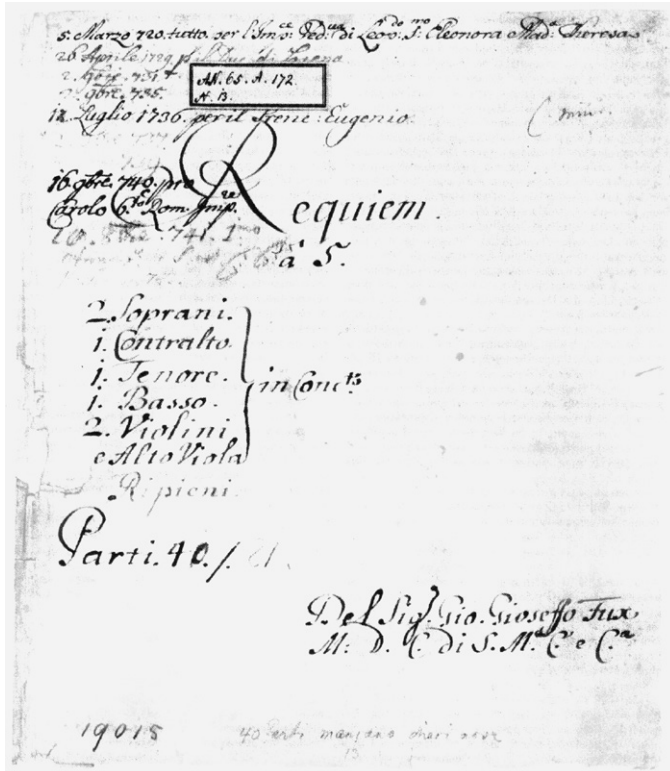 5. Marzo 720. tutto. per l'Im.ce Ved.va di Leop.do I.mo Eleonora e Mad.a Theresa
26 Aprile 1729
2. 9bre. 731
2 9bre. 735.
AN. 65. A. 172
N. 13.
12. Luglio 1736. per il Prenc: Eugenio.
C min:
16. 9bre. 740. pro
Carolo 6.to Rom. Imp.re
Requiem.
741. 1
à 5.
2. Soprani.
1. Contralto
1. Tenore.
1. Basso.
2. Violini
e Alto Viola
in Conc.to
Ripieni.
Parti. 40. /.
Del Sig.r Gio. Gioseffo Fux
M: D. C. di S. M.a C. e C.a
19015
40 Parti
13